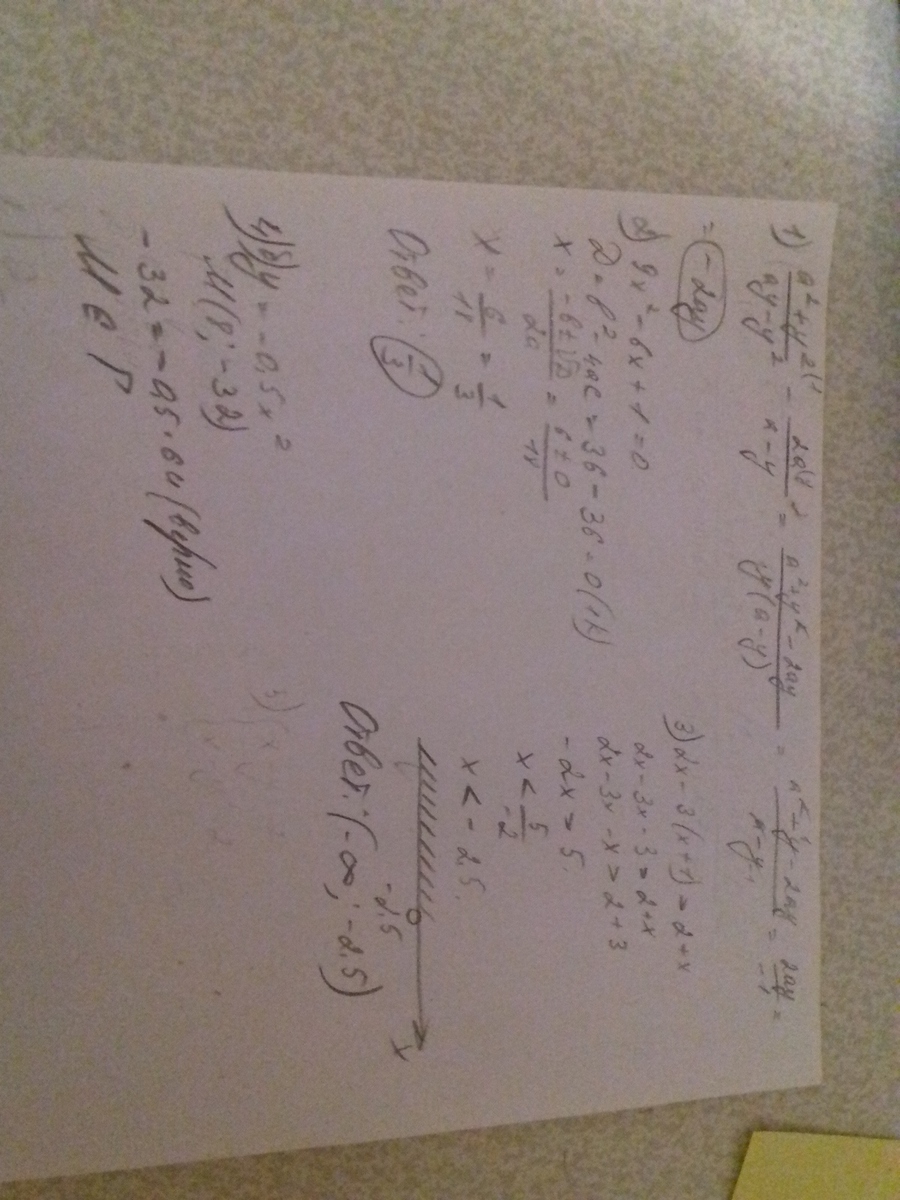 1) (a²+y²)/(ay-y²) - 2a/(x-y) = (a²+y²-2ay)/(y(a-y)) = = 2ay/-1 =
= -2ay
2) 9x²-6x+1=0
D=b²-4ac=36-36=0(1k)
x = (-b±√D)/2a = (6±0)/18
x = 6/18 = 1/3
Ответ: 1/3
3) 2x-3(x+1)>2+x
2x-3x-3>2+x
2x-3x-x>2+3
-2x>5
x<5/-2
x<-2.5.
-2.5 x
Ответ: (-∞; -2.5)
4) б) y=-0,5x²
M(8;-32)
-32=-0,5·64 (верно)
M ∈ Г
5)